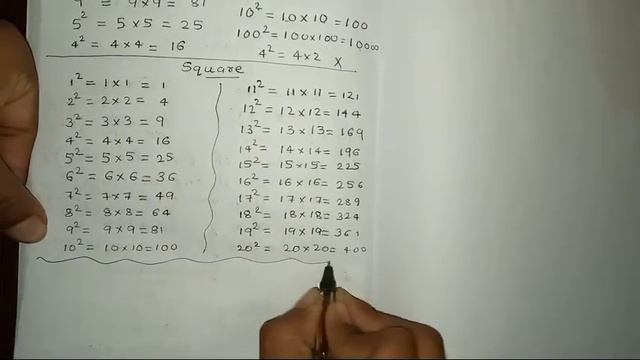 9² = 9×9 = 81
5² = 5×5 = 25
4² = 4×4 = 16
10² = 10×10 = 100
100² = 100×100 = 10,000
4² = 4×2 X
Square
1² = 1×1 = 1
2² = 2×2 = 4
3² = 3×3 = 9
4² = 4×4 = 16
5² = 5×5 = 25
6² = 6×6 = 36
7² = 7×7 = 49
8² = 8×8 = 64
9² = 9×9 = 81
10² = 10×10 = 100
11² = 11×11 = 121
12² = 12×12 = 144
13² = 13×13 = 169
14² = 14×14 = 196
15² = 15×15 = 225
16² = 16×16 = 256
17² = 17×17 = 289
18² = 18×18 = 324
19² = 19×19 = 361
20² = 20×20 = 400